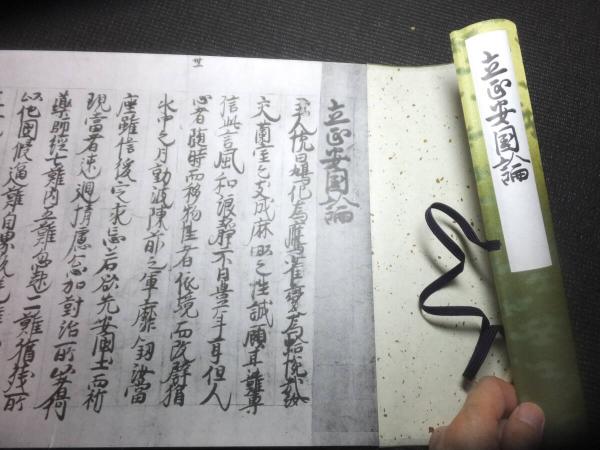 立正安國論
立正安國論
主人悦曰鳩化為鷹雀變為蛤悦哉汝
交蘭室之友成麻畝之性誠顧其難專
信此言風和浪静不日豊年耳但人
心者随時而移物性者依境而改譬猶
水中之月動波陳前之軍靡釼汝當
座雖信後定永忘若欲先安國土而祈
現當者速廻情慮忩加對治所以者何
藥師經七難内五難忽起二難猶残所
以他國侵逼難自界叛逆難